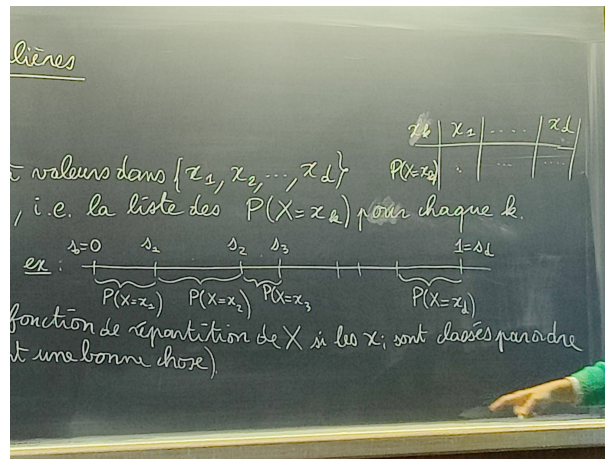 lières
x_k | x_1 | .... | x_d
P(X=x_k) . ... ....
à valeurs dans {x_1, x_2, ..., x_d}
, i.e. la liste des P(X=x_k) pour chaque k.
s_0=0 s_1 s_2 s_3 1=s_d
ex :
P(X=x_1) P(X=x_2) P(X=x_3 P(X=x_d)
fonction de répartition de X si les x_i sont classés par ordre
t une bonne chose).